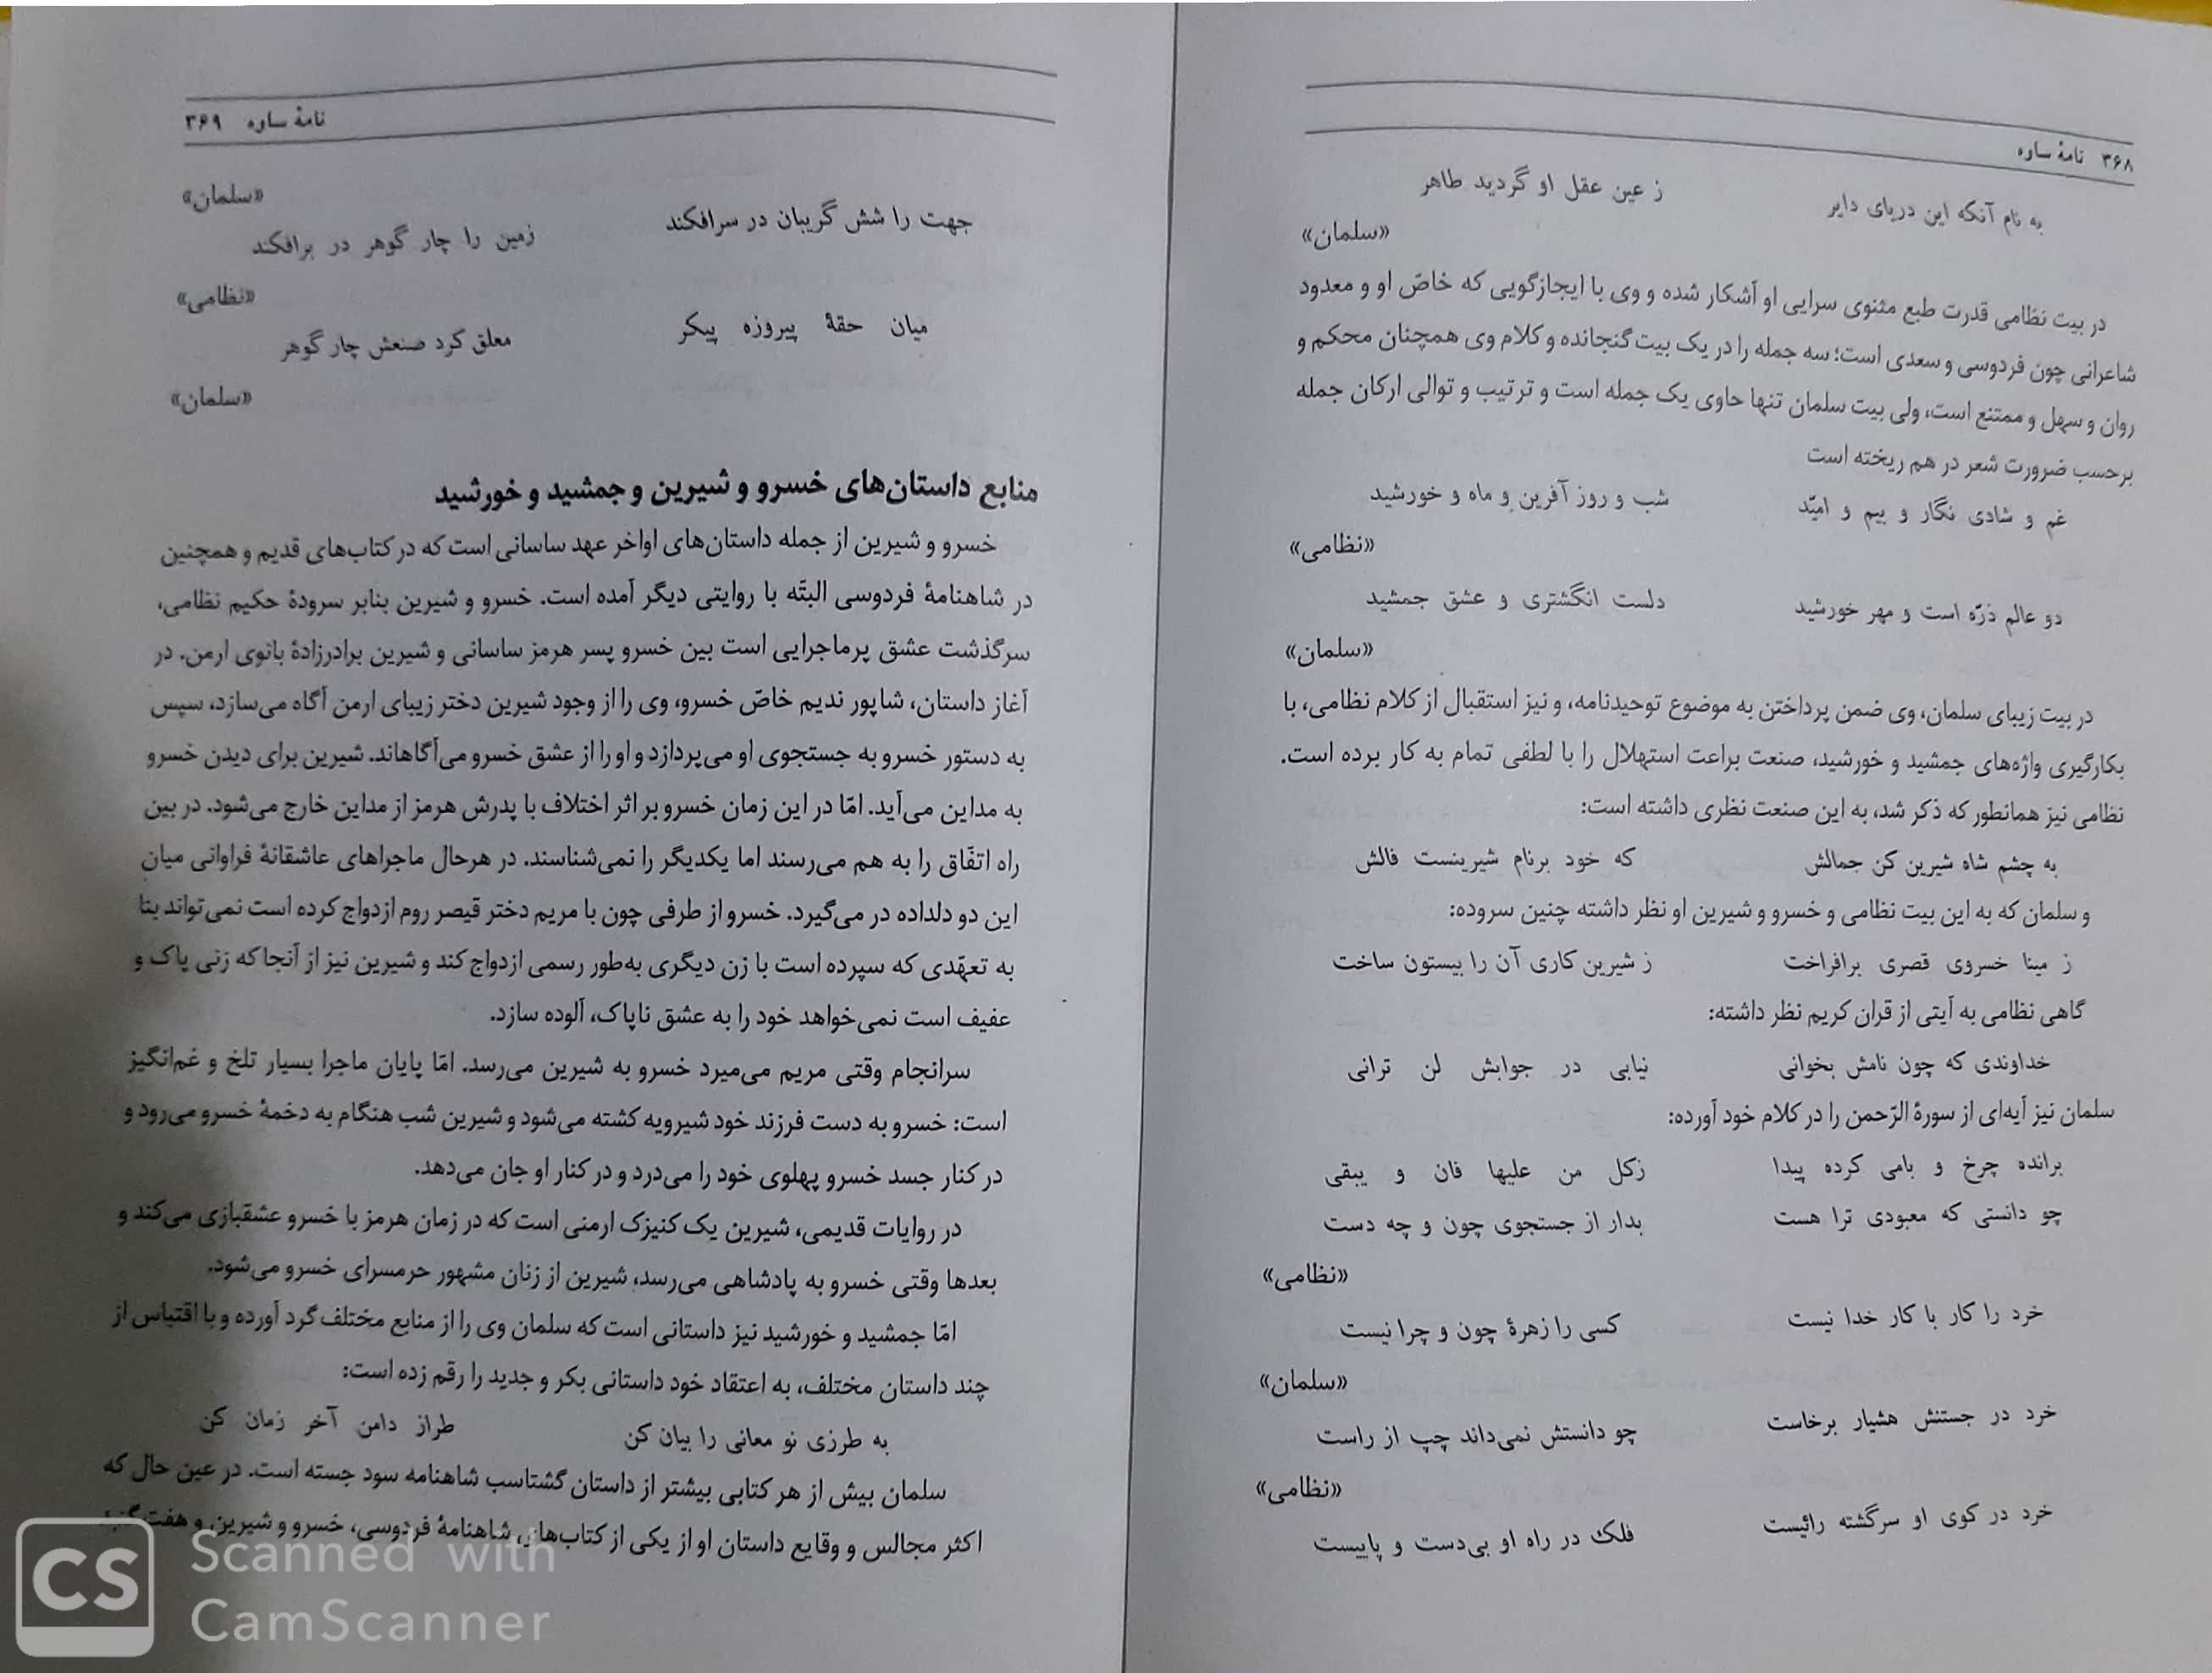 ۳۶۸ نامهٔ ساوه
به نام آنکه این دریای دایر ز عین عقل او گردید طاهر
«سلمان»
در بیت نظامی قدرت طبع مثنوی سرایی او آشکار شده و وی با ایجازگویی که خاصّ او و معدود
شاعرانی چون فردوسی و سعدی است؛ سه جمله را در یک بیت گنجانده و کلام وی همچنان محکم و
روان و سهل و ممتنع است، ولی بیت سلمان تنها حاوی یک جمله است و ترتیب و توالی ارکان جمله
برحسب ضرورت شعر در هم ریخته است
غم و شادی نگار و بیم و امیّد شب و روز آفرین و ماه و خورشید
«نظامی»
دو عالم ذرّه است و مهر خورشید دلست انگشتری و عشق جمشید
«سلمان»
در بیت زیبای سلمان، وی ضمن پرداختن به موضوع توحیدنامه، و نیز استقبال از کلام نظامی، با
بکارگیری واژه‌های جمشید و خورشید، صنعت براعت استهلال را با لطفی تمام به کار برده است.
نظامی نیز همانطور که ذکر شد، به این صنعت نظری داشته است:
به چشم شاه شیرین کن جمالش که خود برنام شیرینست فالش
و سلمان که به این بیت نظامی و خسرو و شیرین او نظر داشته چنین سروده:
ز مینا خسروی قصری برافراخت ز شیرین کاری آن را بیستون ساخت
گاهی نظامی به آیتی از قران کریم نظر داشته:
خداوندی که چون نامش بخوانی نیابی در جوابش لن ترانی
سلمان نیز آیه‌ای از سورهٔ الرّحمن را در کلام خود آورده:
برانده چرخ و بامی کرده پیدا زکل من علیها فان و یبقی
چو دانستی که معبودی ترا هست بدار از جستجوی چون و چه دست
«نظامی»
خرد را کار با کار خدا نیست کسی را زهرهٔ چون و چرا نیست
«سلمان»
خرد در جستنش هشیار برخاست چو دانستش نمی‌داند چپ از راست
«نظامی»
خرد در کوی او سرگشته رائیست فلک در راه او بی‌دست و پاییست
نامهٔ ساوه ۳۶۹
«سلمان»
جهت را شش گریبان در سرافکند زمین را چار گوهر در برافکند
«نظامی»
میان حقهٔ پیروزه پیکر معلق کرد صنعش چار گوهر
«سلمان»
منابع داستان‌های خسرو و شیرین و جمشید و خورشید
خسرو و شیرین از جمله داستان‌های اواخر عهد ساسانی است که در کتاب‌های قدیم و همچنین
در شاهنامهٔ فردوسی البتّه با روایتی دیگر آمده است. خسرو و شیرین بنابر سرودهٔ حکیم نظامی،
سرگذشت عشق پرماجرایی است بین خسرو پسر هرمز ساسانی و شیرین برادرزادهٔ بانوی ارمن. در
آغاز داستان، شاپور ندیم خاصّ خسرو، وی را از وجود شیرین دختر زیبای ارمن آگاه می‌سازد، سپس
به دستور خسرو به جستجوی او می‌پردازد و او را از عشق خسرو می‌آگاهاند. شیرین برای دیدن خسرو
به مداین می‌آید. امّا در این زمان خسرو بر اثر اختلاف با پدرش هرمز از مداین خارج می‌شود. در بین
راه اتفّاق را به هم می‌رسند اما یکدیگر را نمی‌شناسند. در هرحال ماجراهای عاشقانهٔ فراوانی میان
این دو دلداده در می‌گیرد. خسرو از طرفی چون با مریم دختر قیصر روم ازدواج کرده است نمی‌تواند بنا
به تعهّدی که سپرده است با زن دیگری به‌طور رسمی ازدواج کند و شیرین نیز از آنجا که زنی پاک و
عفیف است نمی‌خواهد خود را به عشق ناپاک، آلوده سازد.
سرانجام وقتی مریم می‌میرد خسرو به شیرین می‌رسد. امّا پایان ماجرا بسیار تلخ و غم‌انگیز
است: خسرو به دست فرزند خود شیرویه کشته می‌شود و شیرین شب هنگام به دخمهٔ خسرو می‌رود و
در کنار جسد خسرو پهلوی خود را می‌درد و در کنار او جان می‌دهد.
در روایات قدیمی، شیرین یک کنیزک ارمنی است که در زمان هرمز با خسرو عشقبازی می‌کند و
بعدها وقتی خسرو به پادشاهی می‌رسد، شیرین از زنان مشهور حرمسرای خسرو می‌شود.
امّا جمشید و خورشید نیز داستانی است که سلمان وی را از منابع مختلف گرد آورده و با اقتباس از
چند داستان مختلف، به اعتقاد خود داستانی بکر و جدید را رقم زده است:
به طرزی نو معانی را بیان کن طراز دامن آخر زمان کن
سلمان بیش از هر کتابی بیشتر از داستان گشتاسب شاهنامه سود جسته است. در عین حال که
اکثر مجالس و وقایع داستان او از یکی از کتاب‌های شاهنامهٔ فردوسی، خسرو و شیرین و هفت گنبد
CS Scanned with
CamScanner